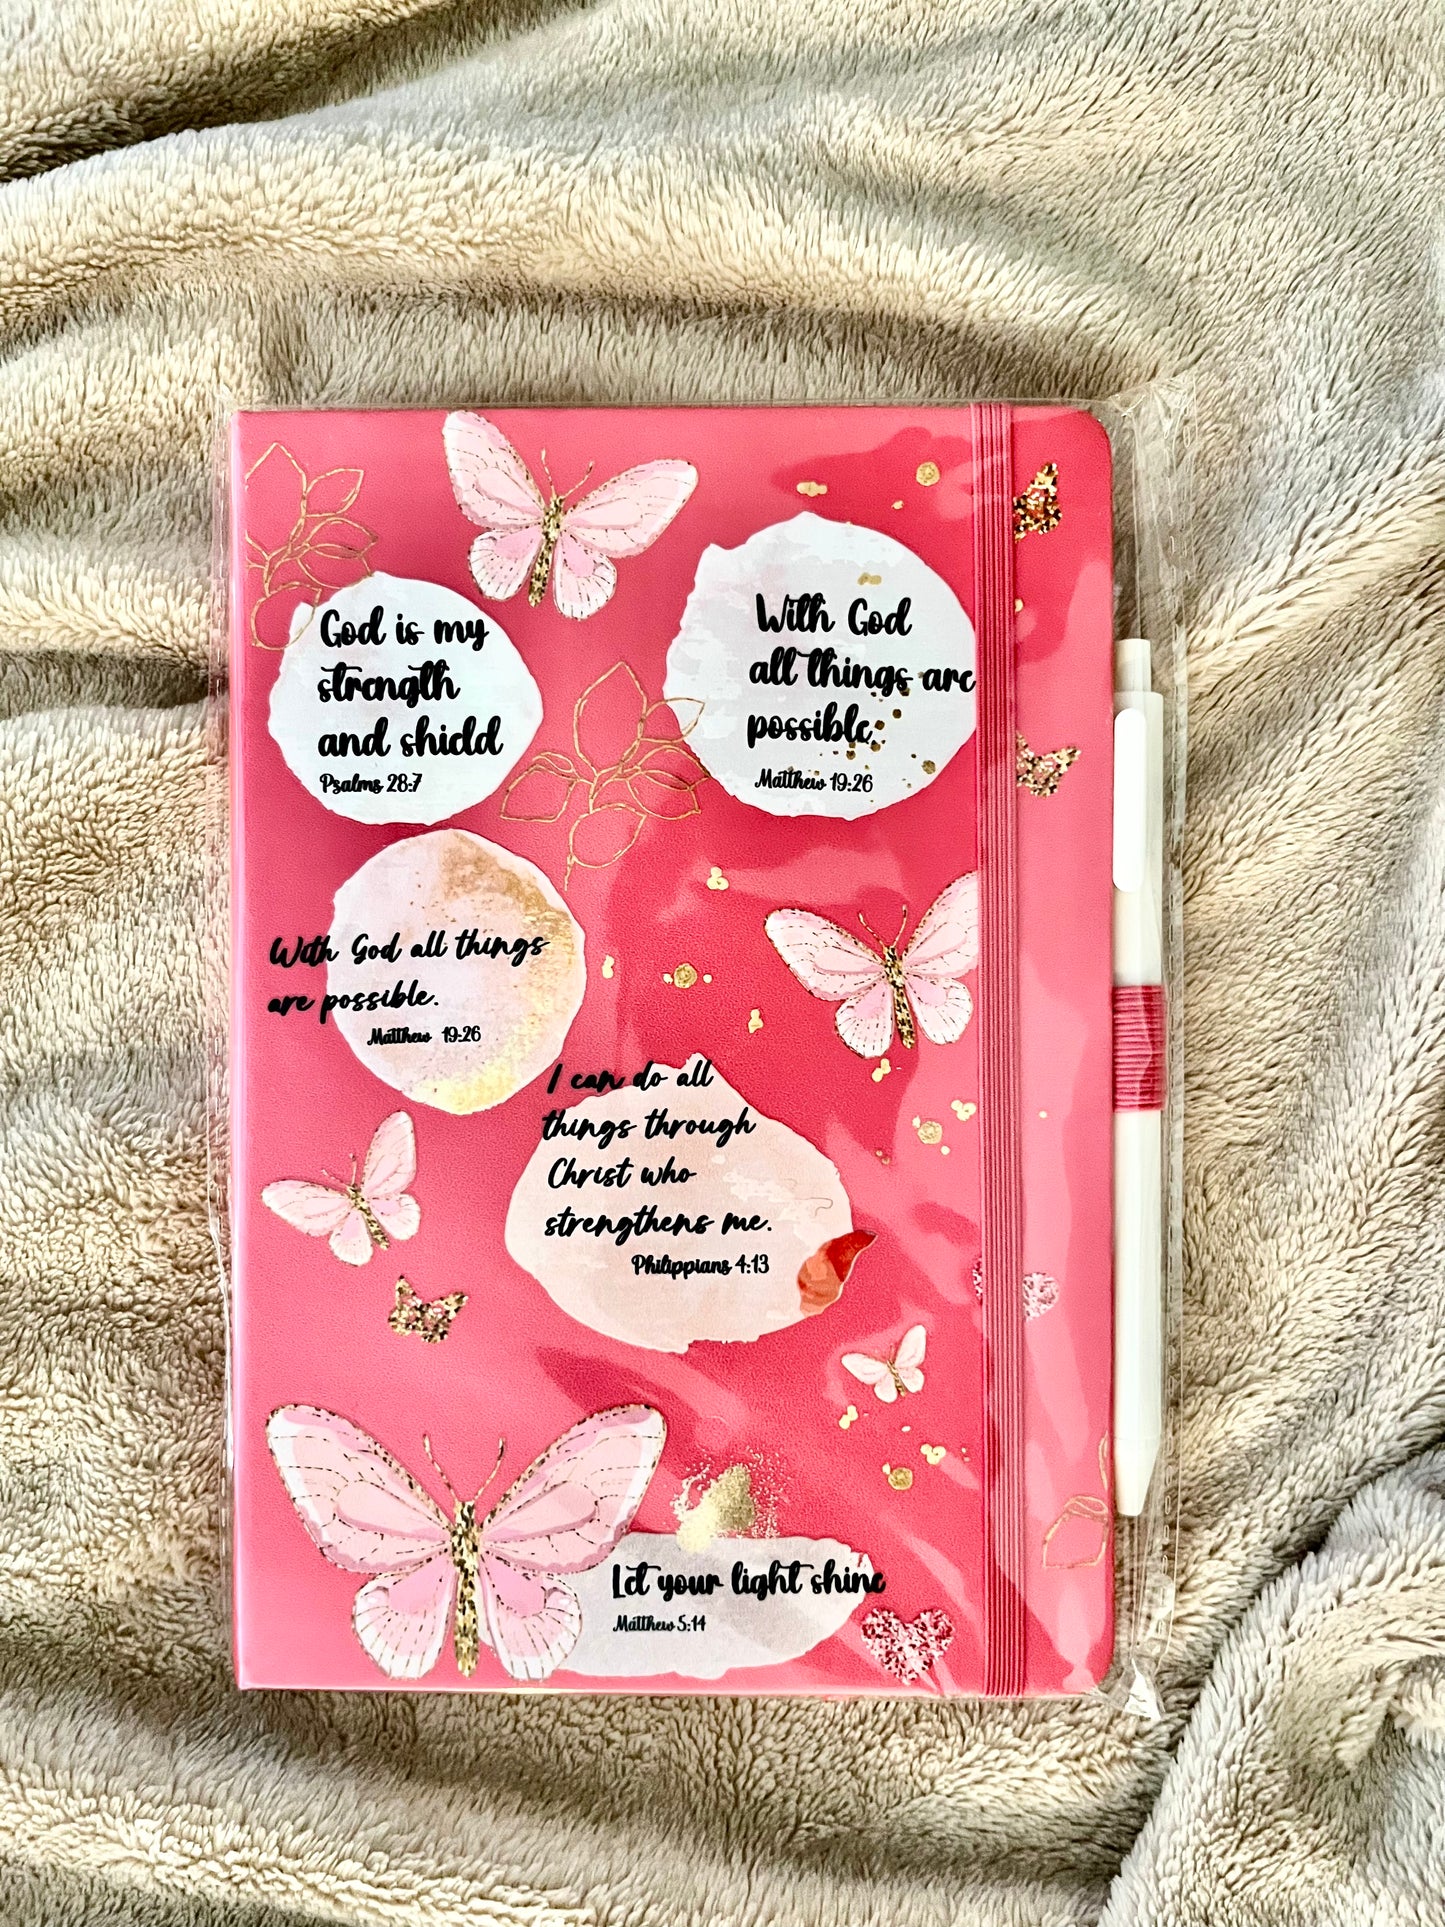 God is my
strength
and shield
Psalms 28:7
With God
all things are
possible.
Matthew 19:26
With God all things
are possible.
Matthew 19:26
I can do all
things through
Christ who
strengthens me.
Philippians 4:13
Let your light shine
Matthew 5:14